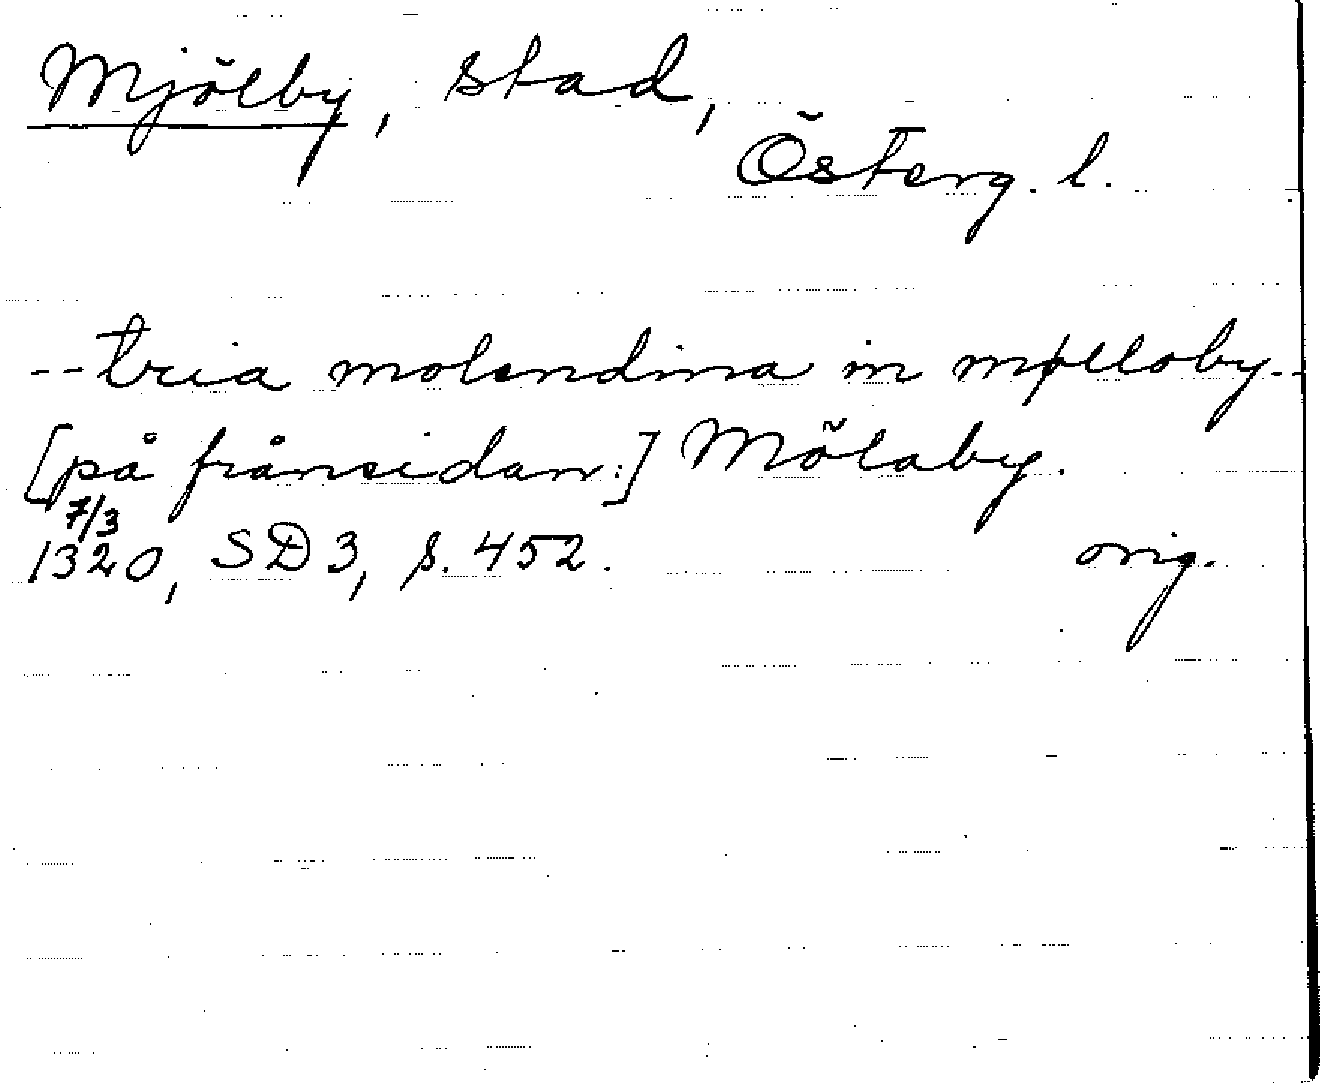 Mjölby, stad,
Österg. l.
--tria molendina in mølloby--
[på frånsidan:] Mölaby.
7/3
1320, SD3, s. 452. orig.